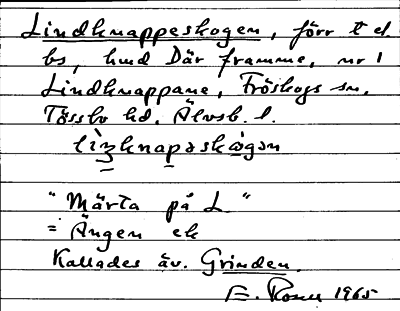 Lindknappeskogen, förr t el
bs, hmd Där framme, nr 1
Lindknappane, Fröskogs sn.
Tössbo hd. Älvsb. l.
"Märta på L"
= Ängen ek
Kallades äv. Grinden.
E. 1965